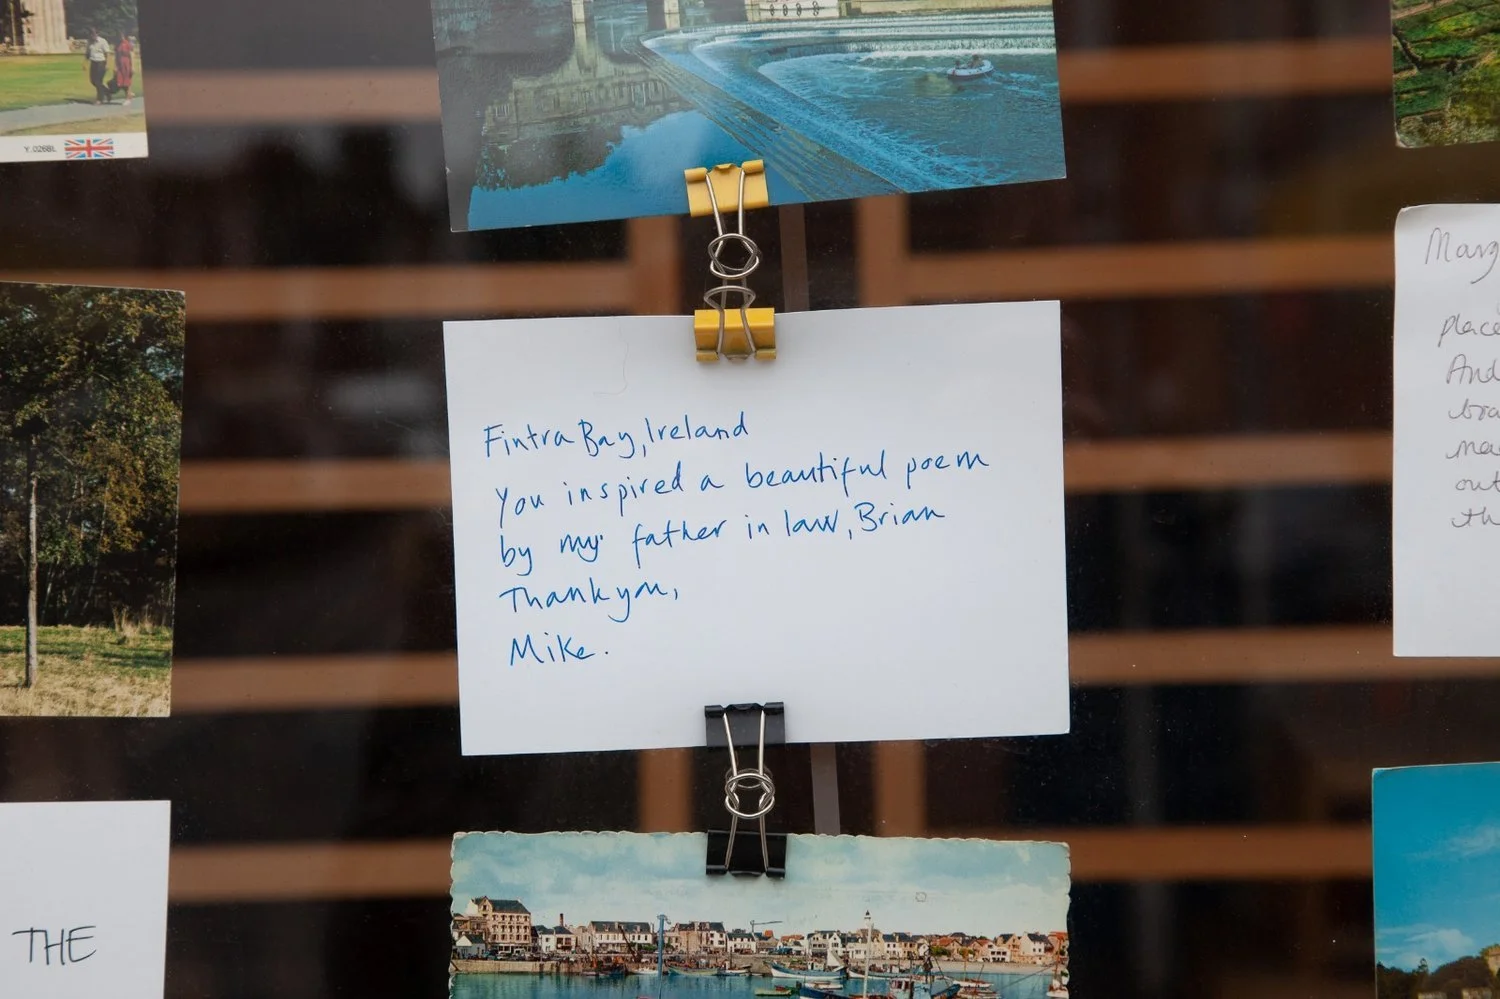 Y.026BL
Fintra Bay, Ireland
You inspired a beautiful poem
by my father in law, Brian
Thank you,
Mike.
place
And
out
THE